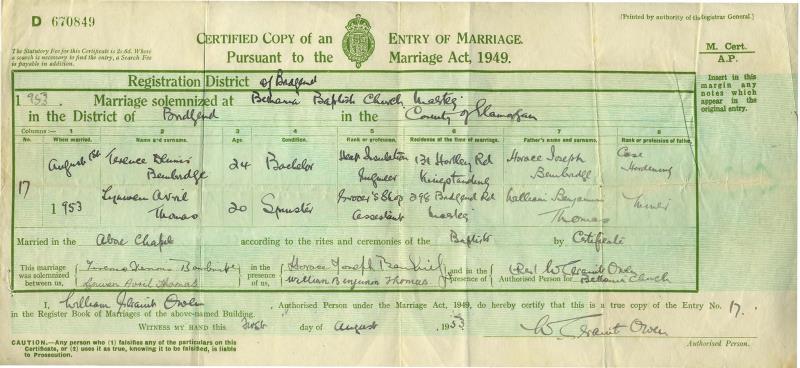 D 670849
[Printed by authority of the Registrar General.]
The Statutory Fee for this Certificate is 2s. 6d. Where
a search is necessary to find the entry, a Search Fee
is payable in addition.
CERTIFIED COPY of an ENTRY OF MARRIAGE.
Pursuant to the Marriage Act, 1949.
M. Cert.
A.P.
Registration District of Bridgend
Insert in this
margin any
notes which
appear in the
original entry.
1953. Marriage solemnized at Bethania Baptist Church Maesteg
in the District of Bridgend in the County of Glamorgan
Columns:— 1 2 3 4 5 6 7 8
No. When married. Name and surname. Age Condition. Rank or profession. Residence at the time of marriage. Father's name and surname. Rank or profession of father.
17
August 1st 1953
Terence Dennis Bembridge 24 Bachelor Heat Insulation Engineer 131 Hartley Rd Kingstanding Horace Joseph Bembridge Case Hardening
Avril Thomas 20 Spinster Grocer's Shop Assistant 298 Bridgend Rd Maesteg William Benjamin Thomas
Married in the Above Chapel according to the rites and ceremonies of the Baptists by Certificate
This marriage was solemnized between us, Terence Dennis Bembridge Avril Thomas in the presence of us, Horace Joseph Bembridge William Benjamin Thomas and in the presence of (Rev) W. Geraint Owen Authorised Person for Bethania Church
I, William Geraint Owen, Authorised Person under the Marriage Act, 1949, do hereby certify that this is a true copy of the Entry No. 17.
in the Register Book of Marriages of the above-named Building.
WITNESS MY HAND this First day of August, 1953 W. Geraint Owen
Authorised Person.
CAUTION.—Any person who (1) falsifies any of the particulars on this
Certificate, or (2) uses it as true, knowing it to be falsified, is liable
to Prosecution.